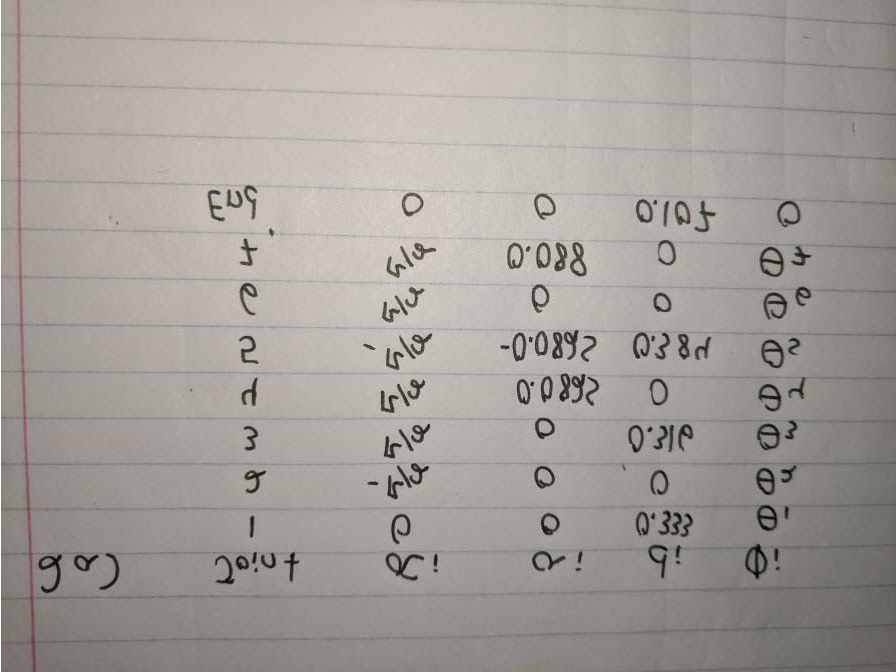 Joint αi ai di θi
1 0 0 0.333 θ1
2 -π/2 0 0 θ2
3 π/2 0 0.316 θ3
4 π/2 0.0825 0 θ4
5 -π/2 -0.0825 0.384 θ5
6 π/2 0 0 θ6
7 π/2 0.088 0 θ7
End 0 0 0.107 0